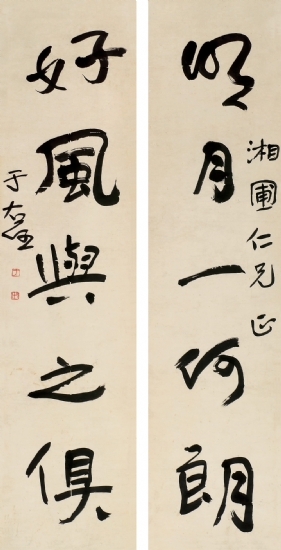 明月一何朗
湘圃仁兄正
好風與之俱
于右任